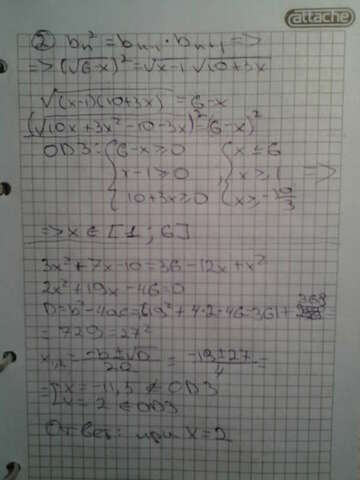 attache
② bₙ² = bₙ₋₁ · bₙ₊₁ =>
=> (√6-x)² = √x-1 √10+3x
√(x-1)(10+3x) = 6-x
(√10x+3x²-10-3x)² = (6-x)²
ОДЗ: { 6-x ≥ 0 { x ≤ 6
x-1 ≥ 0 , x ≥ 1 =>
10+3x ≥ 0 x ≥ -10/3
=> x ∈ [1 ; 6]
3x²+7x-10 = 36-12x+x²
2x²+19x-46=0
D = b²-4ac = 19²+4·2·46 = 361+368
= 729 = 27²
x₁,₂ = -b±√D / 2a = -19±27 / 4 =
= [ x = -11,5 ∉ ОДЗ
x = 2 ∈ ОДЗ
Ответ: при x=2